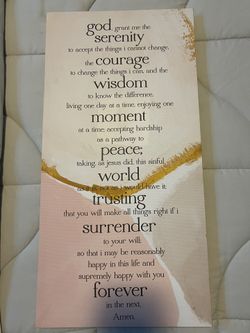 god, grant me the
serenity
to accept the things i cannot change,
the courage
to change the things i can, and the
wisdom
to know the difference.
living one day at a time; enjoying one
moment
at a time; accepting hardship
as a pathway to
peace;
taking, as jesus did, this sinful
world
as it is, not as i would have it;
trusting
that you will make all things right if i
surrender
to your will;
so that i may be reasonably
happy in this life and
supremely happy with you
forever
in the next.
Amen.